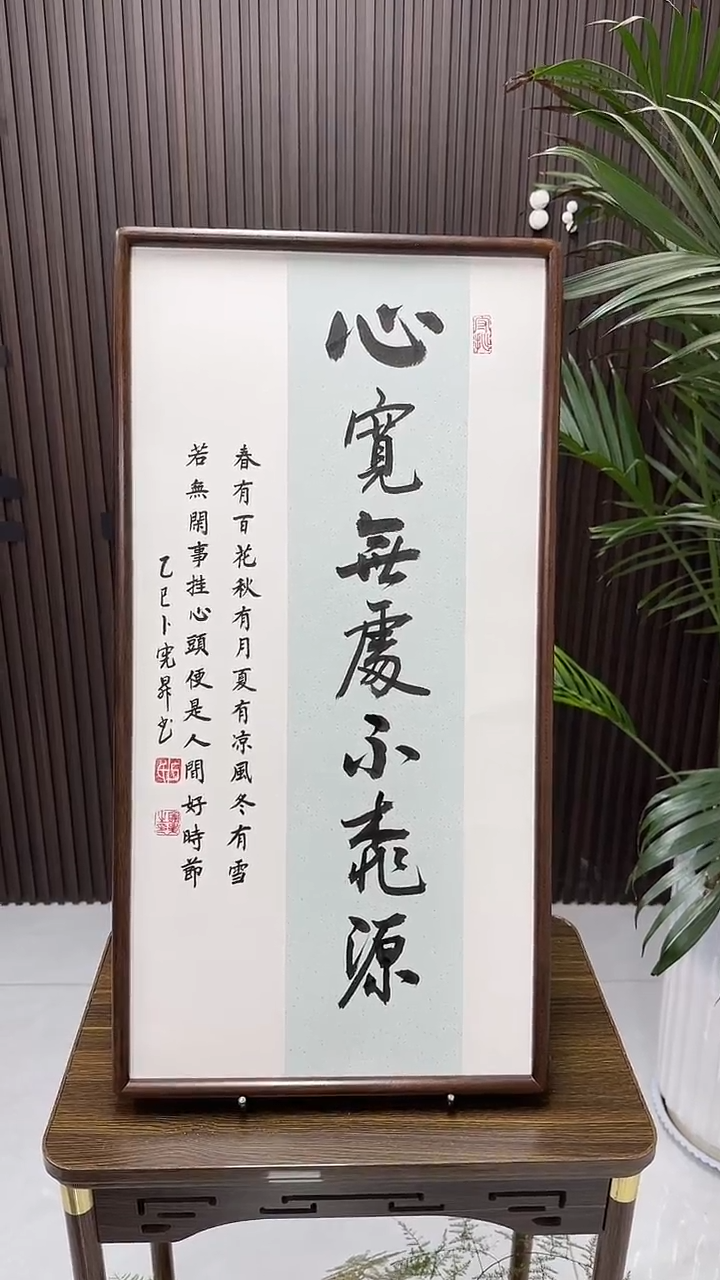 心寬無處不桃源
春有百花秋有月夏有凉風冬有雪
若無閑事挂心頭便是人間好時節
乙巳卜宪昇书